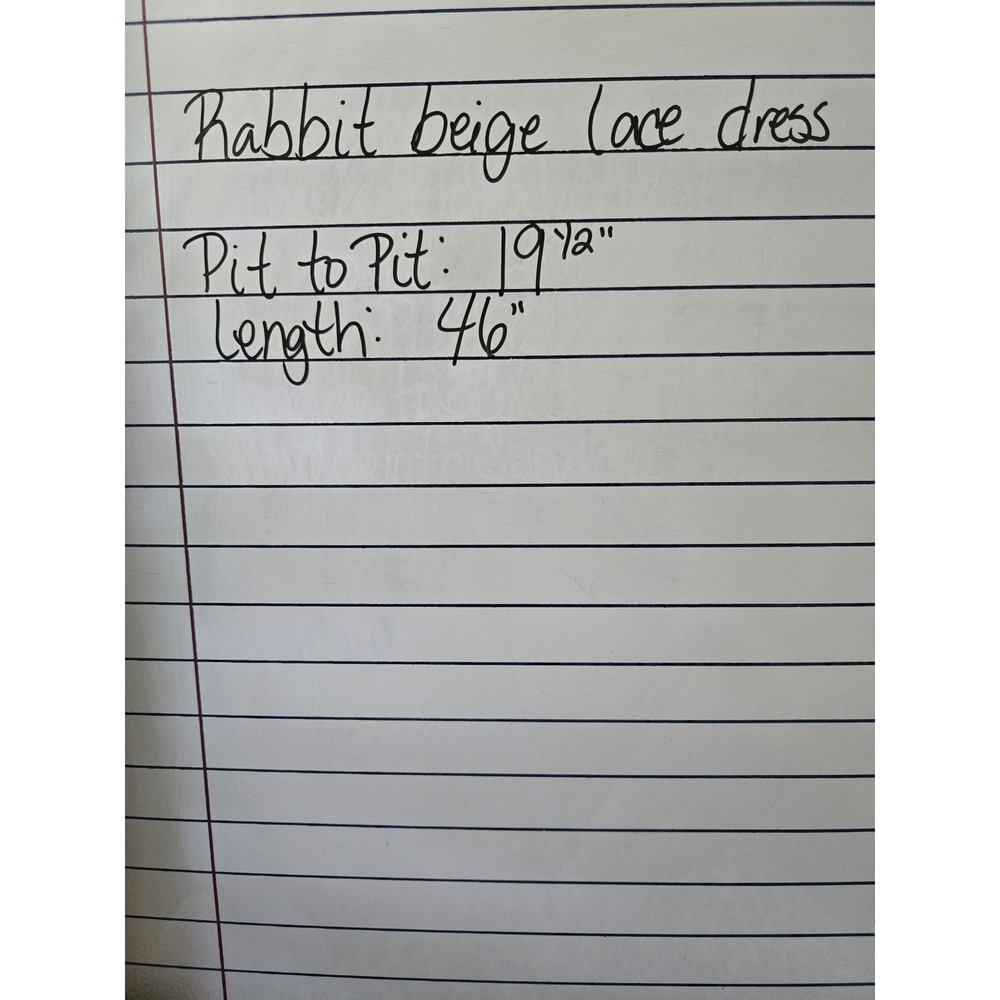 Rabbit beige lace dress
Pit to Pit: 19 1/2"
length: 46"